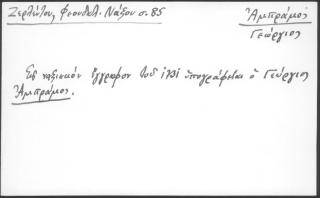 Ζερλέντου, Φεουδαλ. Νάξου σ. 85
Ἀμπράμος
Γεώργιος
Εἰς ναξιακὸν ἔγγραφον τοῦ 1731 ὑπογράφεται ὁ Γεώργιος
Ἀμπράμος.